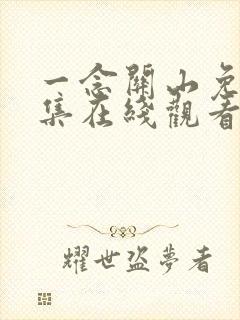 一念關山免
集在綫觀看
耀世盜夢者